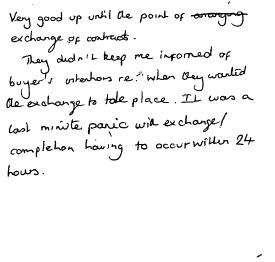 Very good up until the point of
exchange of contracts.
They didn't keep me informed of
buyer's intentions re: when they wanted
the exchange to take place. It was a
last minute panic with exchange/
completion having to occur within 24
hours.